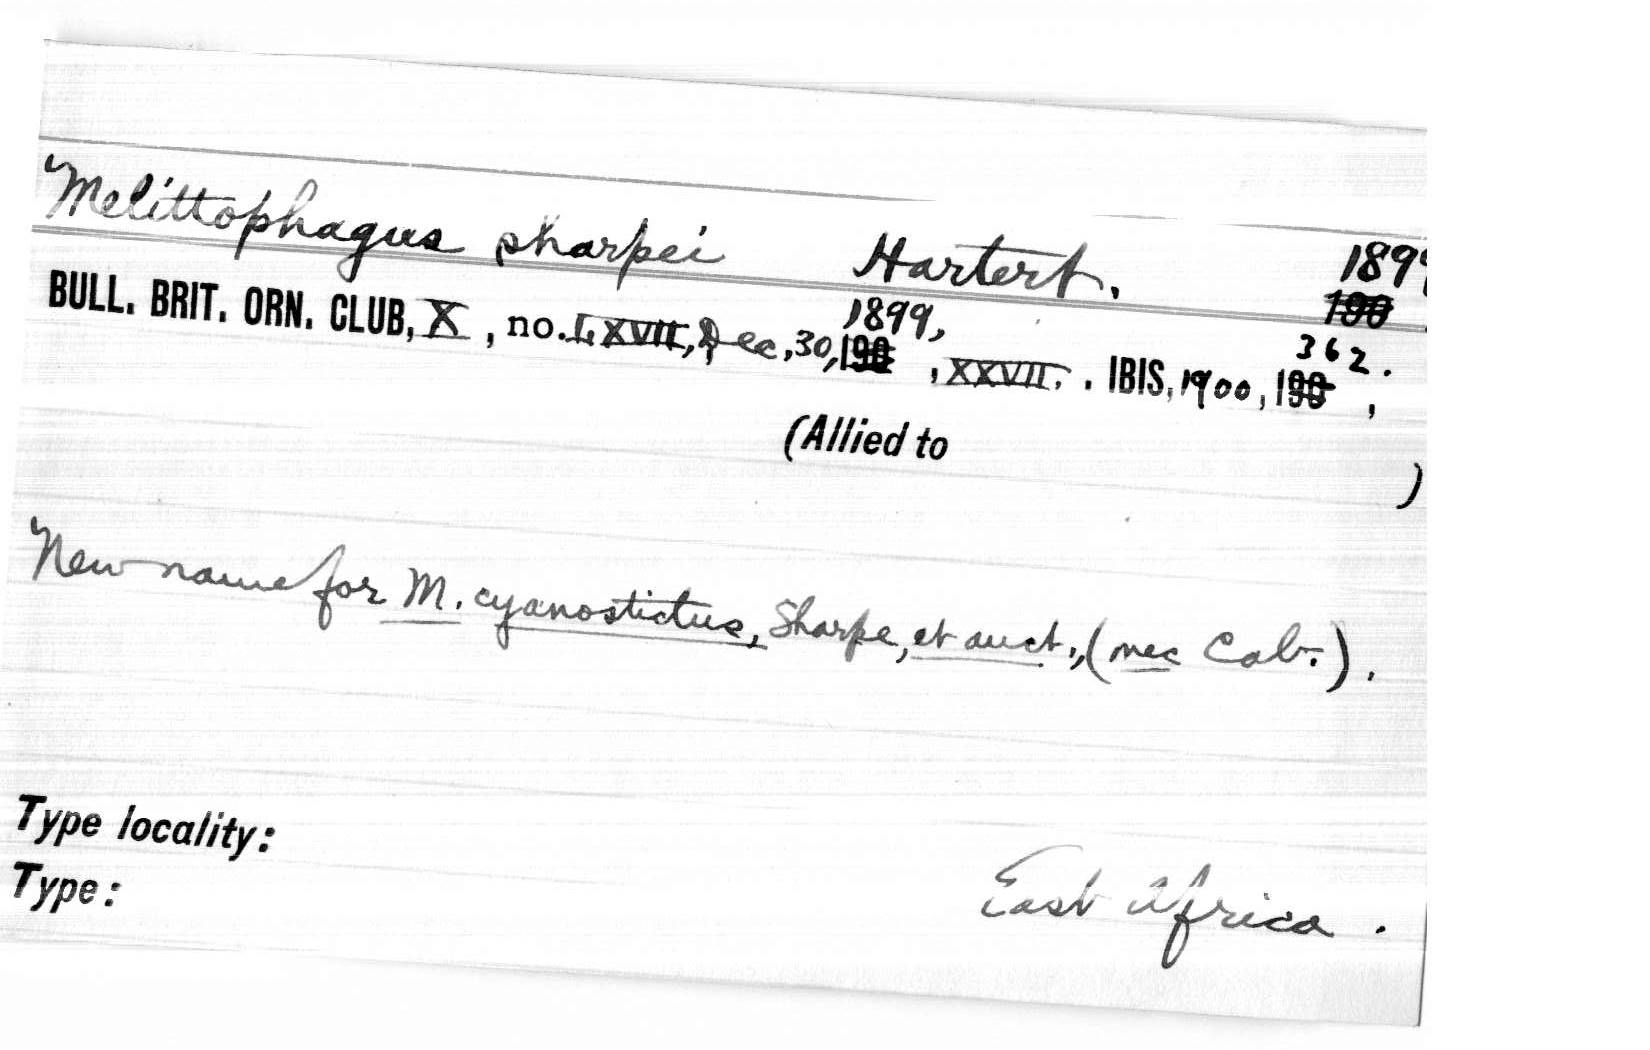 Melittophagus sharpei Hartert. 1899
190
BULL. BRIT. ORN. CLUB, X, no. LXVII, Dec, 30, 1899, 190, XXVII. . IBIS, 1900, 190, 362.
(Allied to )
New name for M. cyanostictus, Sharpe, et auct., (nec Cab.).
Type locality:
Type:
East Africa.